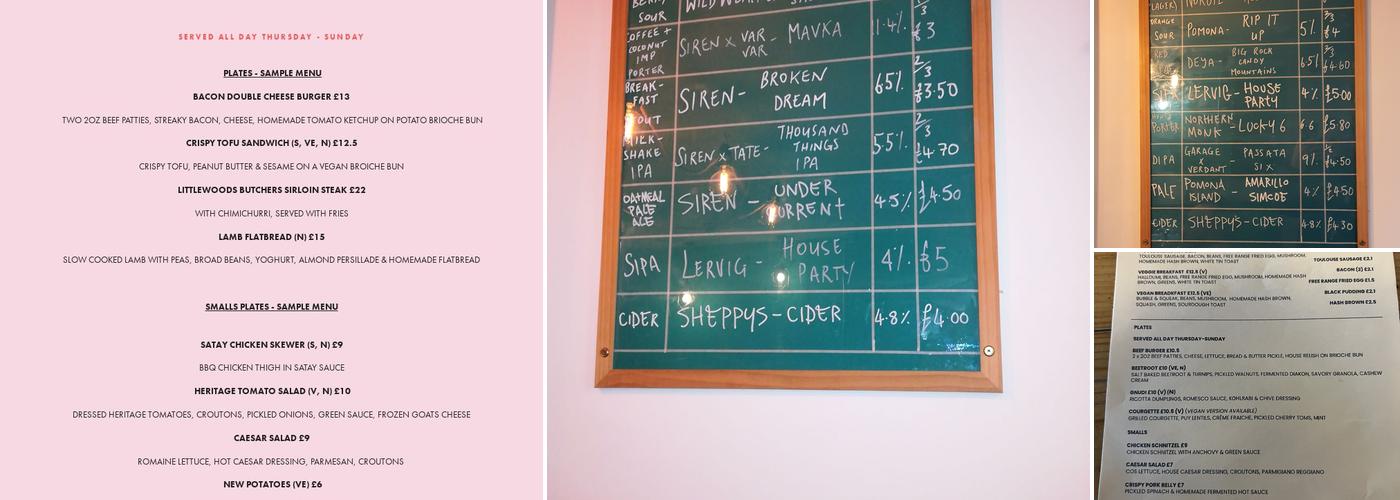 SERVED ALL DAY THURSDAY - SUNDAY
PLATES - SAMPLE MENU
BACON DOUBLE CHEESE BURGER £13
TWO 2OZ BEEF PATTIES, STREAKY BACON, CHEESE, HOMEMADE TOMATO KETCHUP ON POTATO BRIOCHE BUN
CRISPY TOFU SANDWICH (S, VE, N) £12.5
CRISPY TOFU, PEANUT BUTTER & SESAME ON A VEGAN BROICHE BUN
LITTLEWOODS BUTCHERS SIRLOIN STEAK £22
WITH CHIMICHURRI, SERVED WITH FRIES
LAMB FLATBREAD (N) £15
SLOW COOKED LAMB WITH PEAS, BROAD BEANS, YOGHURT, ALMOND PERSILLADE & HOMEMADE FLATBREAD
SMALLS PLATES - SAMPLE MENU
SATAY CHICKEN SKEWER (S, N) £9
BBQ CHICKEN THIGH IN SATAY SAUCE
HERITAGE TOMATO SALAD (V, N) £10
DRESSED HERITAGE TOMATOES, CROUTONS, PICKLED ONIONS, GREEN SAUCE, FROZEN GOATS CHEESE
CAESAR SALAD £9
ROMAINE LETTUCE, HOT CAESAR DRESSING, PARMESAN, CROUTONS
NEW POTATOES (VE) £6
SOUR
COFFEE + COCONUT IMP PORTER SIREN x VAR VAR - MAVKA 11.4% £3
BREAK-FAST STOUT SIREN - BROKEN DREAM 65% 2/3 £3.50
MILK-SHAKE IPA SIREN x TATE - THOUSAND THINGS IPA 5.5% 2/3 £4.70
OATMEAL PALE ALE SIREN - UNDER CURRENT 45% £4.50
SIPA LERVIG - HOUSE PARTY 4% £5
CIDER SHEPPYS - CIDER 4.8% £4.00
ORANGE SOUR POMONA - RIP IT UP 5% 2/3 £4
RED DEYA - BIG ROCK CANDY MOUNTAINS 65% 2/3 £4.60
SIPA LERVIG - HOUSE PARTY 4% £5.00
PORTER NORTHERN MONK - LUCKY 6 6.6 £5.80
DIPA GARAGE x VERDANT - PASSATA SIX 9% 1/2 £4.50
PALE POMONA ISLAND - AMARILLO SIMCOE 4% £4.50
CIDER SHEPPY'S - CIDER 4.8% £4.30
TOULOUSE SAUSAGE, BACON, BEANS, FREE RANGE FRIED EGG, MUSHROOM,
HOMEMADE HASH BROWN, WHITE TIN TOAST
VEGGIE BREAKFAST £12.5 (V)
HALLOUMI, BEANS, FREE RANGE FRIED EGG, MUSHROOM, HOMEMADE HASH
BROWN, GREENS, WHITE TIN TOAST
VEGAN BREAKFAST £12.5 (VE)
BUBBLE & SQUEAK, BEANS, MUSHROOM, HOMEMADE HASH BROWN,
SQUASH, GREENS, SOURDOUGH TOAST
TOULOUSE SAUSAGE £2.1
BACON (2) £2.1
FREE RANGE FRIED EGG £1.5
BLACK PUDDING £2.1
HASH BROWN £2.5
PLATES
SERVED ALL DAY THURSDAY-SUNDAY
BEEF BURGER £10.5
2 x 2OZ BEEF PATTIES, CHEESE, LETTUCE, BREAD & BUTTER PICKLE, HOUSE RELISH ON BRIOCHE BUN
BEETROOT £10 (VE, N)
SALT BAKED BEETROOT & TURNIPS, PICKLED WALNUTS, FERMENTED DIAKON, SAVORY GRANOLA, CASHEW
CREAM
GNUDI £10 (V) (N)
RICOTTA DUMPLINGS, ROMESCO SAUCE, KOHLRABI & CHIVE DRESSING
COURGETTE £10.5 (V) (VEGAN VERSION AVAILABLE)
GRILLED COURGETTE, PUY LENTILS, CRÈME FRAICHE, PICKLED CHERRY TOMS, MINT
SMALLS
CHICKEN SCHNITZEL £8
CHICKEN SCHNITZEL WITH ANCHOVY & GREEN SAUCE
CAESAR SALAD £7
COS LETTUCE, HOUSE CAESAR DRESSING, CROUTONS, PARMIGIANO REGGIANO
CRISPY PORK BELLY £7
PICKLED SPINACH & HOMEMADE FERMENTED HOT SAUCE